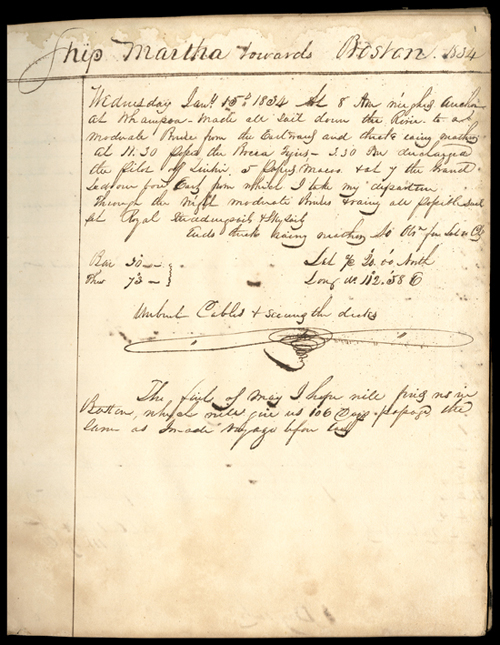 Ship Martha towards Boston. 1834
Wednesday Jany 15d 1834 At 8 Am weighed Anchor
at Whampoa - Made all sail down the River to a
moderate Breese from the Eastward and thick rainy weather
At 11.30 passed the Bocca Tigris - 3.30 Pm discharged
the pilot off Lintin, 5 passed Macao. & at 7 the Grand
Ladrone bore East from which I take my departure
Through the night moderate Breeses & rainy all possible sail
set Royal Studdingsails & Skysails
Ends thick rainy weather So
Bar 30 --
Ther 73 -
Lat North
Long 112.58 E
Unbent Cables & securing the decks
The first of May I hope will find us in
Boston, which will give us 106 Days passage the
same as I made voyage before last